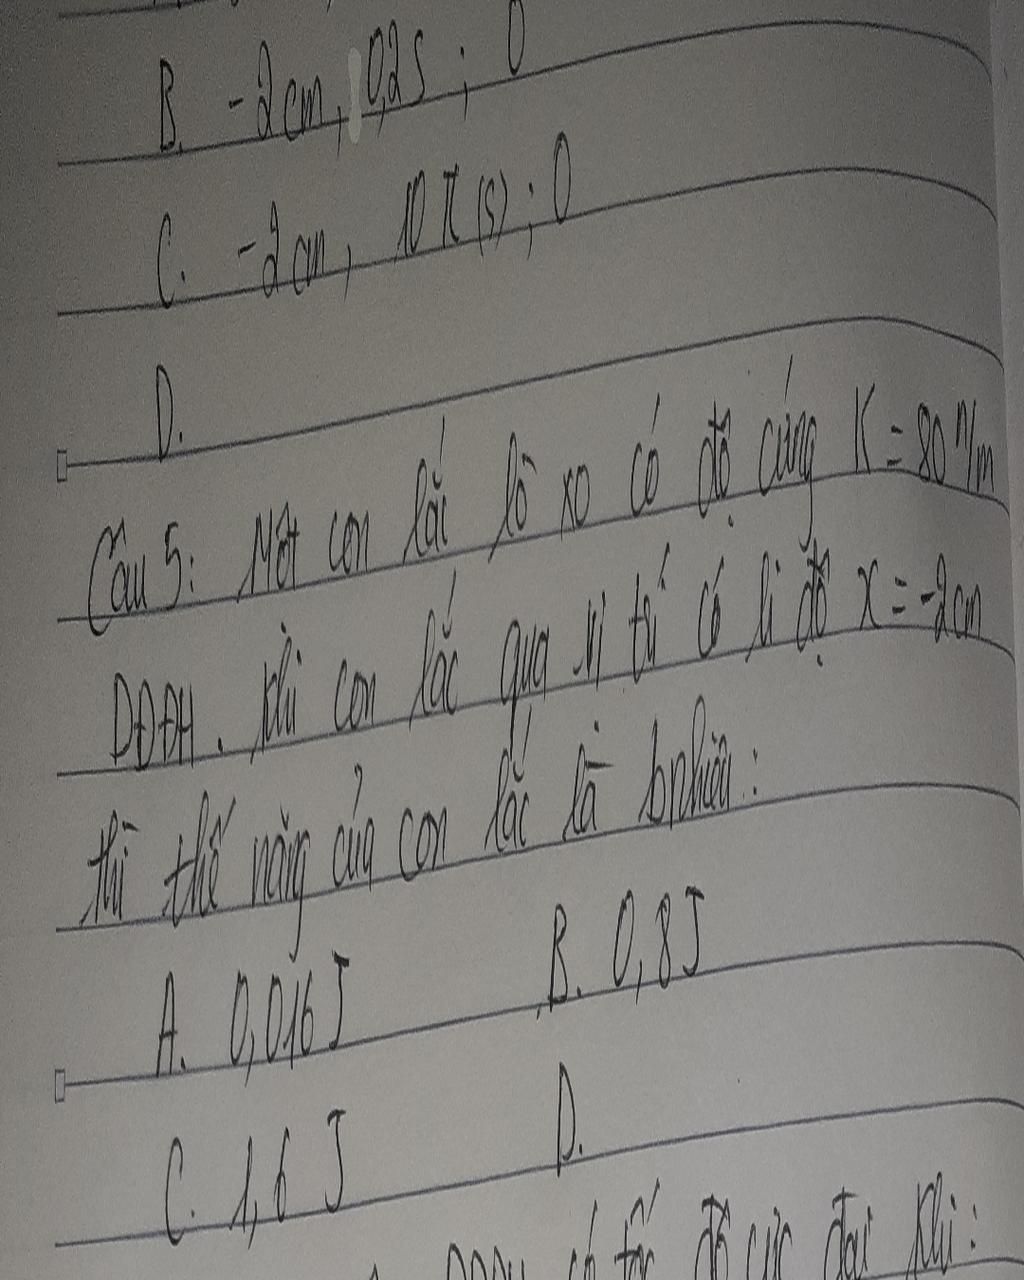 B. -2 cm, 0,2 s ; 0
C. -2 cm, 10 π (s) ; 0
D.
Câu 5: Một con lắc lò xo có độ cứng K = 80 N/m
DĐĐH. Khi con lắc qua vị trí có li độ x = -2 cm
thì thế năng của con lắc là bnhiêu:
A. 0,016 J B. 0,8 J
C. 1,6 J D.
DĐĐH có tốc độ cực đại khi: